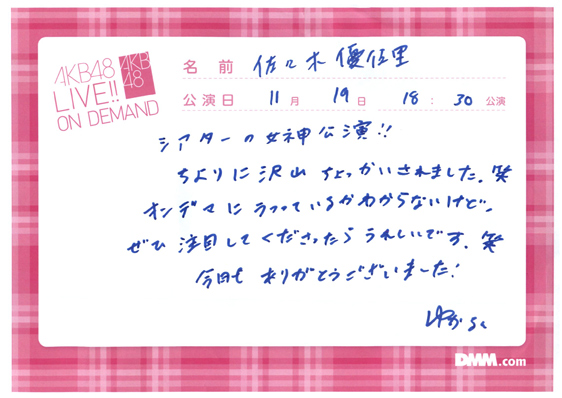 AKB48
LIVE!!
ON DEMAND
AKB
48
名前 佐々木優佳里
公演日 11月 19日 18:30 公演
シアターの女神公演!!
ちよりに沢山ちょっかいされました。笑
オンデマにうつっているかわからないけど、
ぜひ注目してくださったらうれしいです。笑
今日もありがとうございました!
DMM.com